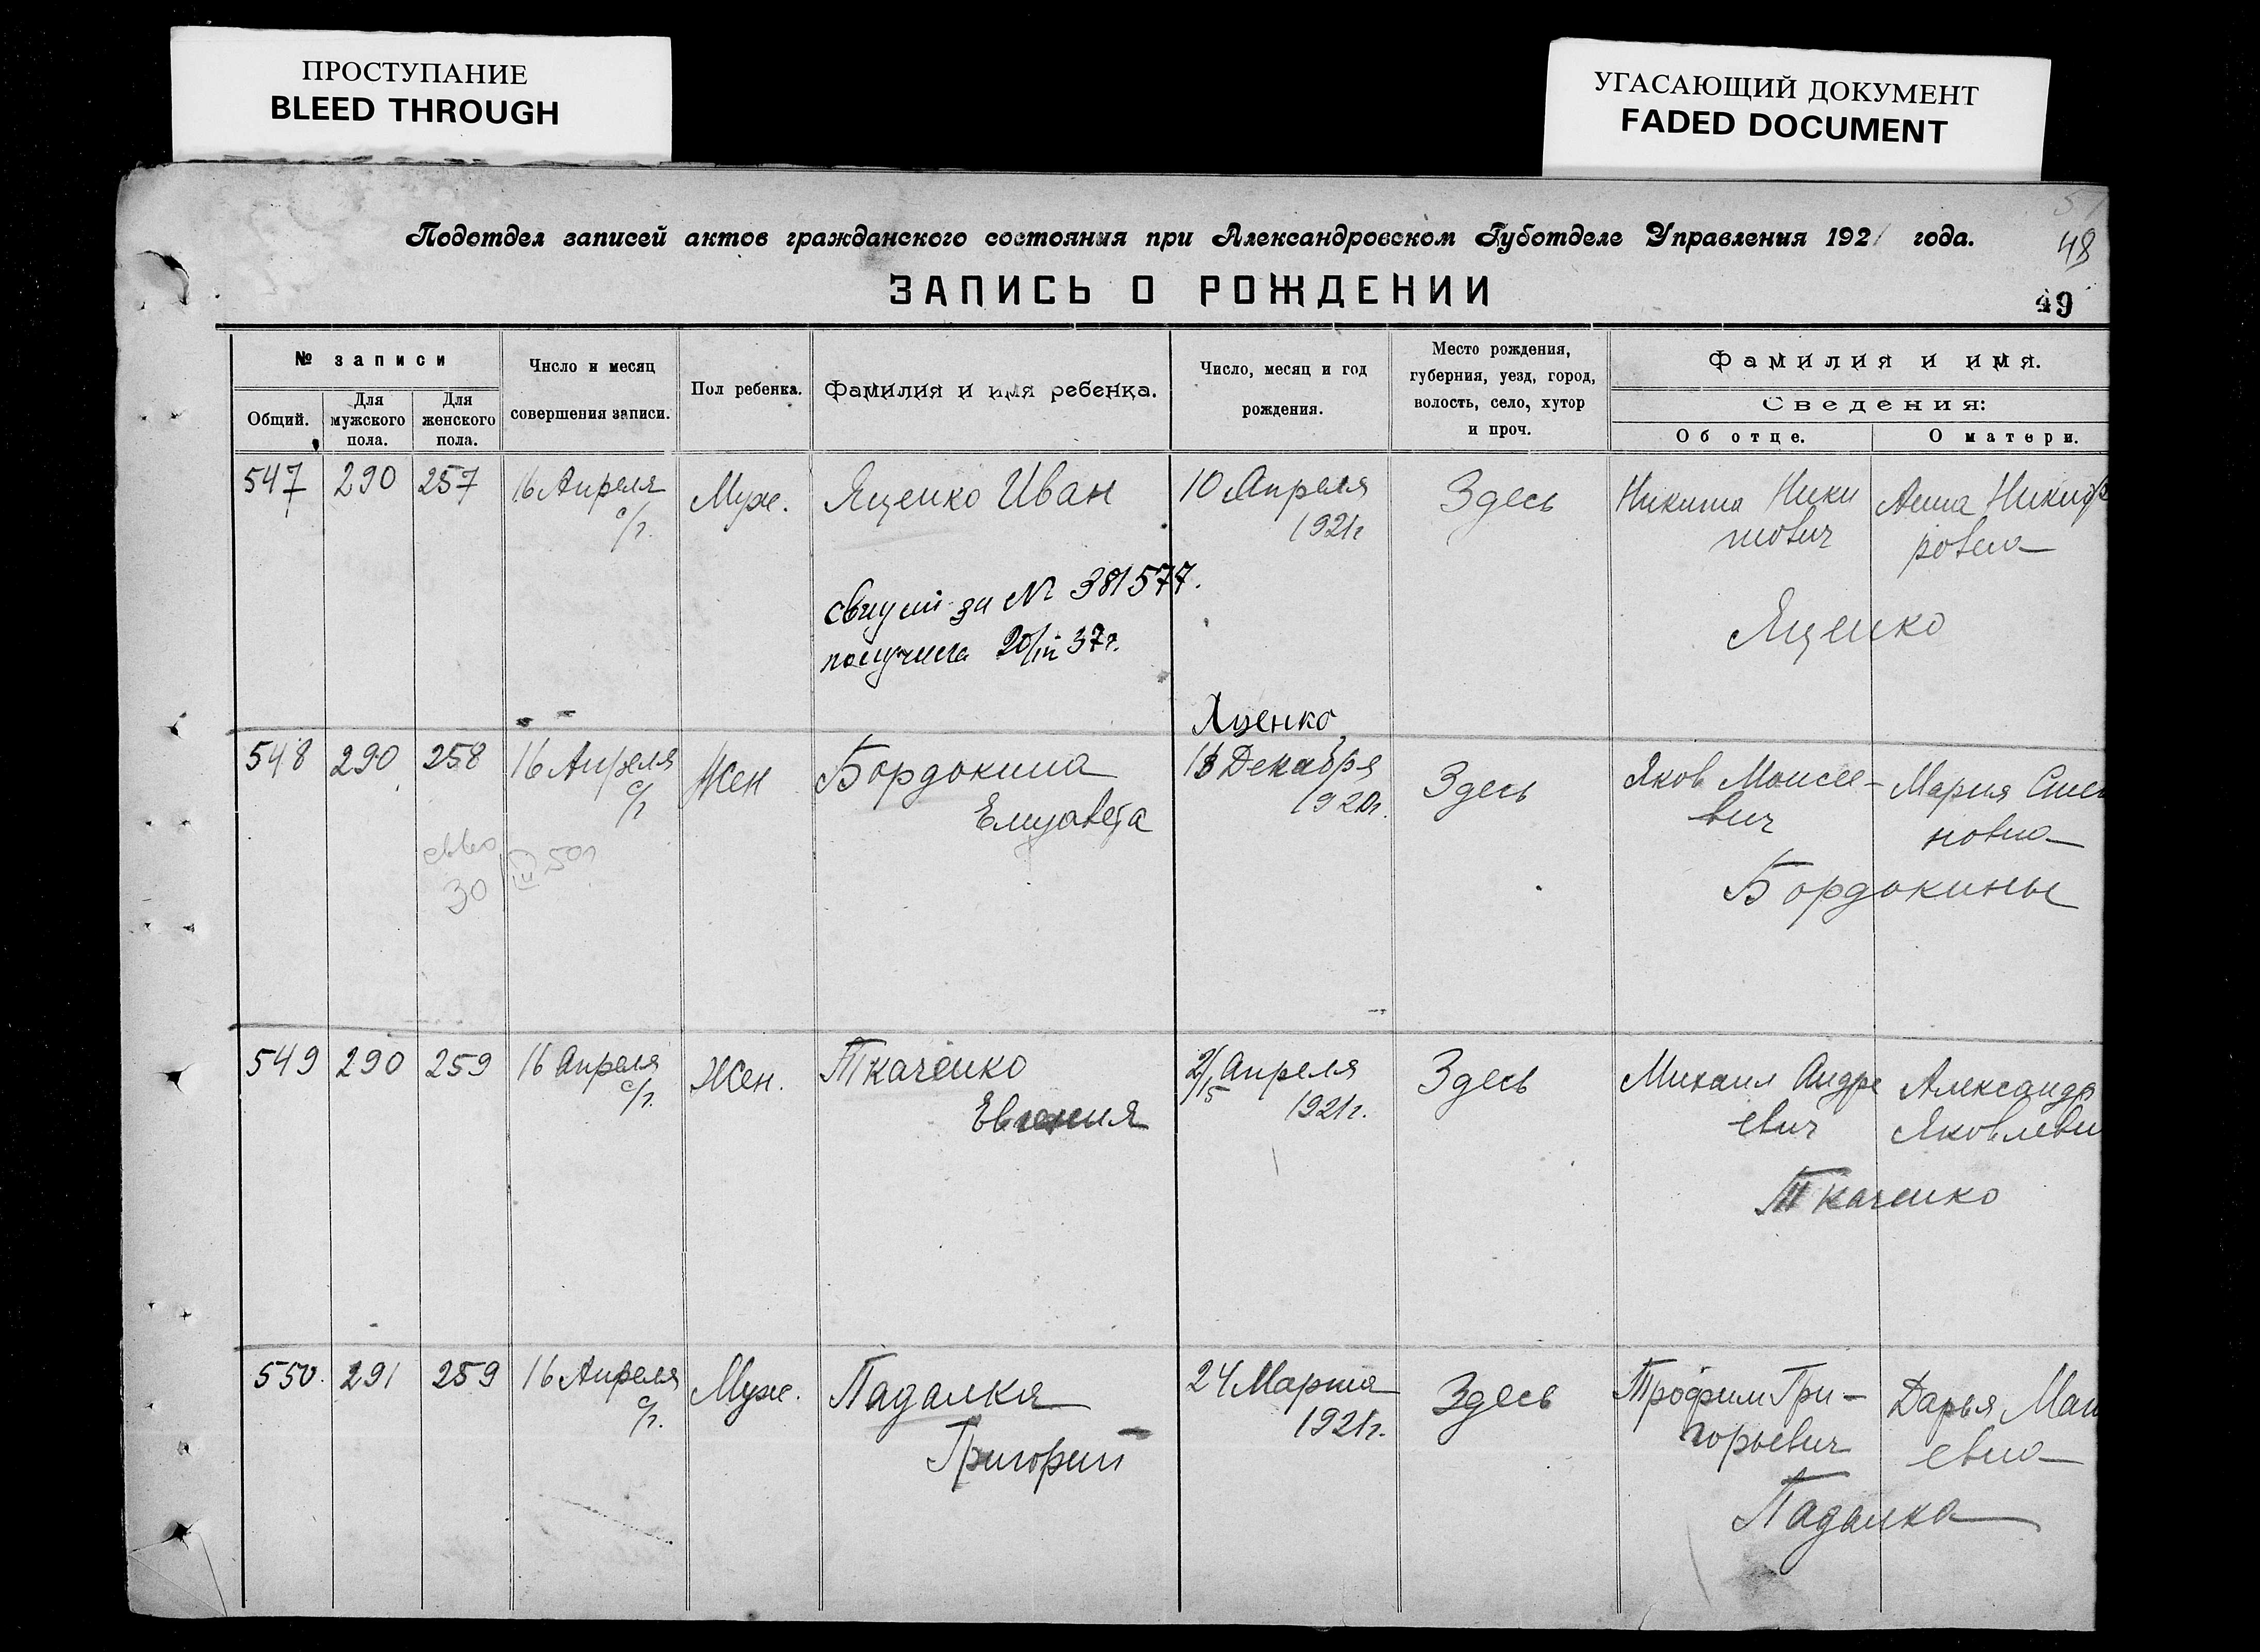 ПРОСТУПАНИЕ
BLEED THROUGH
УГАСАЮЩИЙ ДОКУМЕНТ
FADED DOCUMENT
Подотдел записей актов гражданского состояния при Александровском Губотделе Управления 1921 года.
48
ЗАПИСЬ О РОЖДЕНИИ
49
№ записи
Общий.
Для мужского пола.
Для женского пола.
Число и месяц совершения записи.
Пол ребенка.
Фамилия и имя ребенка.
Число, месяц и год рождения.
Место рождения, губерния, уезд, город, волость, село, хутор и проч.
Фамилия и имя.
Сведения:
Об отце.
О матери.
547 290 257 16 Апреля с/г. Муж. Яценко Иван 10 Апреля 1921г Здесь Никита Ники
тович
Анна Никиф
ровна
Яценко
свид за № 381577.
получила 20/III 37г.
Яценко
548 290 258 16 Апреля с/г Жен Бордокина
Елизавета
13 Декабря 1920г. Здесь Яков Моисее-
вич
Мария
новна
Бордокины
30 III 50г
549 290 259 16 Апреля с/г. Жен. Ткаченко
Евгения
2/15 Апреля 1921г. Здесь Михаил Андре
евич
Александр
Яковлевн
Ткаченко
550. 291 259 16 Апреля с/г. Муж. Падалка
Григорий
24 Марта 1921г. Здесь Трофим Гри-
горьевич
Дарья
евна
Падалка